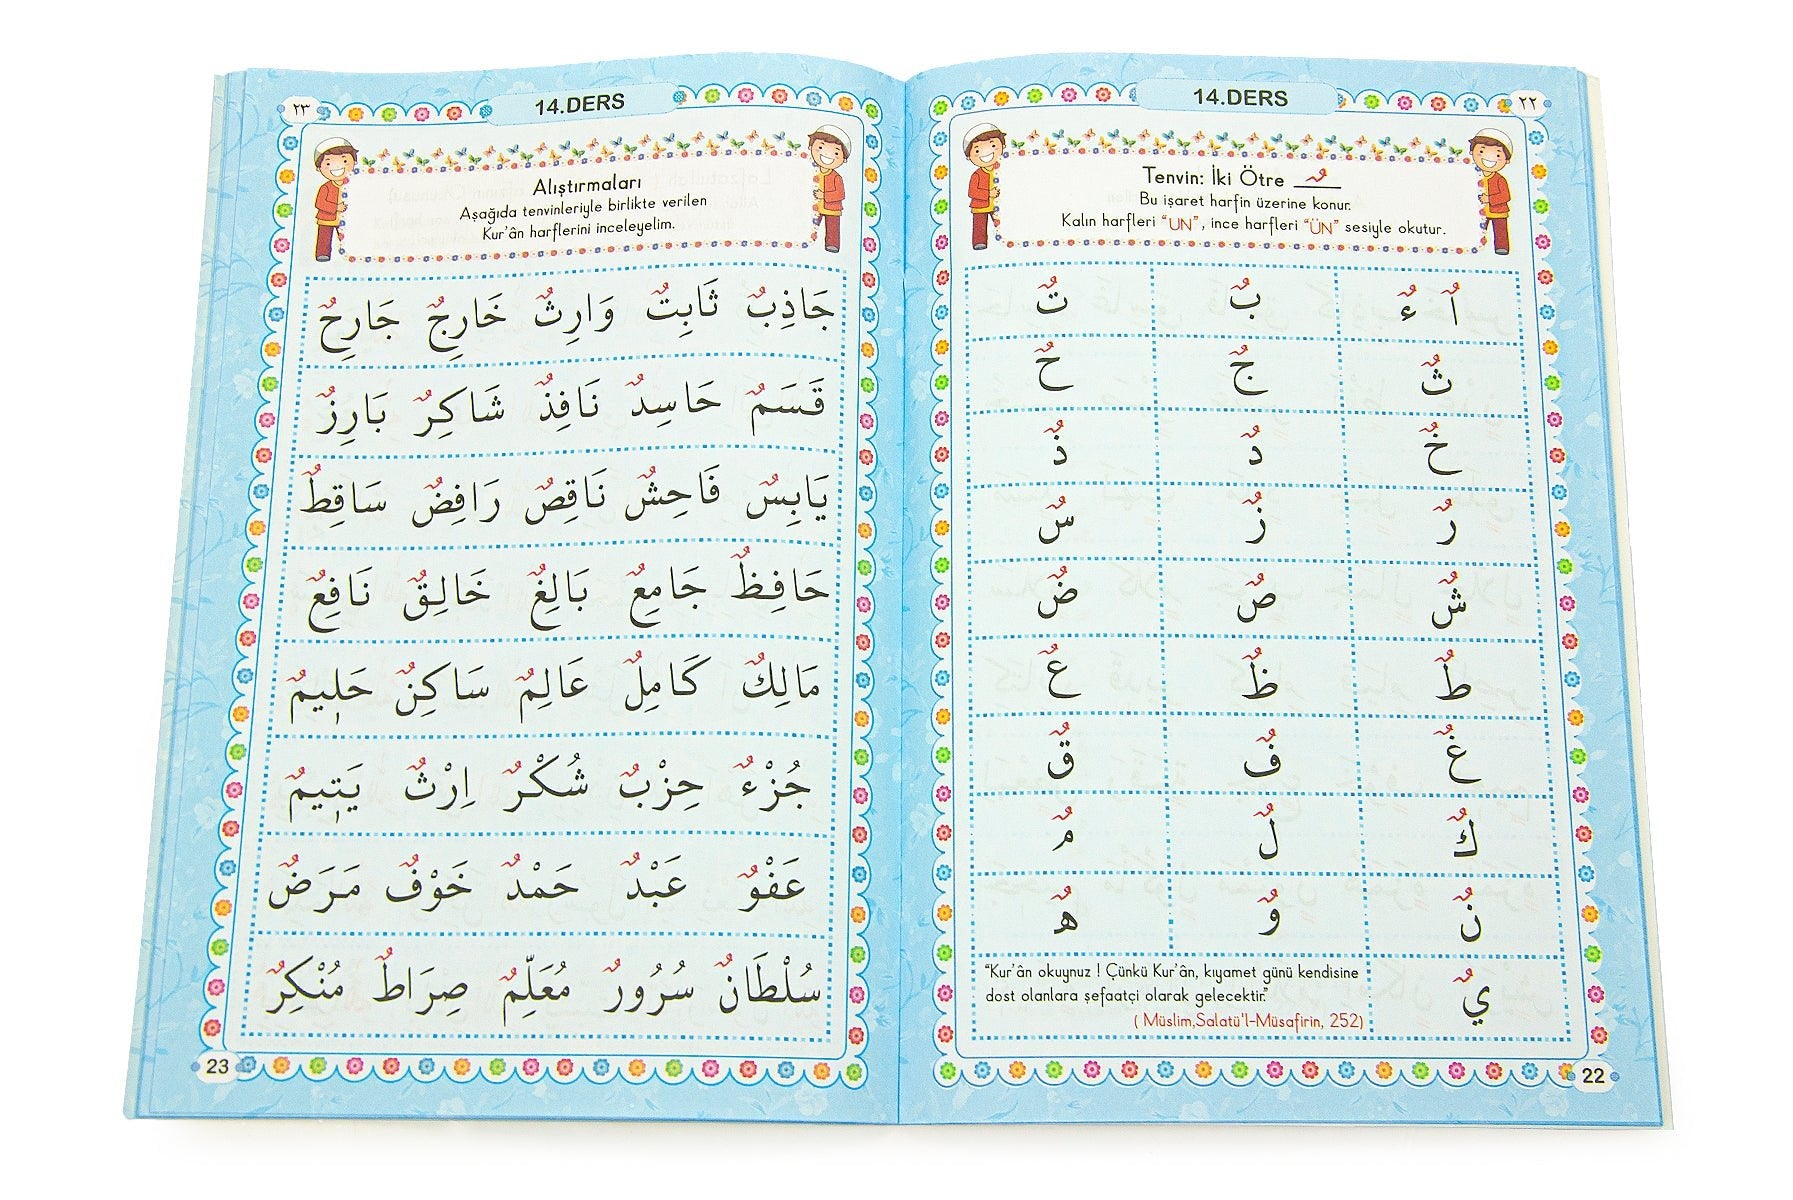 ٢٢
14.DERS
Tenvin: İki Ötre ـٌ
Bu işaret harfin üzerine konur.
Kalın harfleri “UN”, ince harfleri “ÜN” sesiyle okutur.
اٌ ءٌ بٌ تٌ
ثٌ جٌ حٌ
خٌ دٌ ذٌ
رٌ زٌ سٌ
شٌ صٌ ضٌ
طٌ ظٌ عٌ
غٌ فٌ قٌ
كٌ لٌ مٌ
نٌ وٌ هٌ
يٌ
“Kur'ân okuyunuz ! Çünkü Kur'ân, kıyamet günü kendisine
dost olanlara şefaatçi olarak gelecektir.”
( Müslim,Salatü'l-Müsafirin, 252)
22
٢٣
14.DERS
Alıştırmaları
Aşağıda tenvinleriyle birlikte verilen
Kur'ân harflerini inceleyelim.
جَاذِبٌ ثَابِتٌ وَارِثٌ خَارِجٌ جَارِحٌ
قَسَمٌ حَاسِدٌ نَافِذٌ شَاكِرٌ بَارِزٌ
يَابِسٌ فَاحِشٌ نَاقِصٌ رَافِضٌ سَاقِطٌ
حَافِظٌ جَامِعٌ بَالِغٌ خَالِقٌ نَافِعٌ
مَالِكٌ كَامِلٌ عَالِمٌ سَاكِنٌ حَلِيمٌ
جُزْءٌ حِزْبٌ شُكْرٌ اِرْثٌ يَتِيمٌ
عَفْوٌ عَبْدٌ حَمْدٌ خَوْفٌ مَرَضٌ
سُلْطَانٌ سُرُورٌ مُعَلِّمٌ صِرَاطٌ مُنْكِرٌ
23